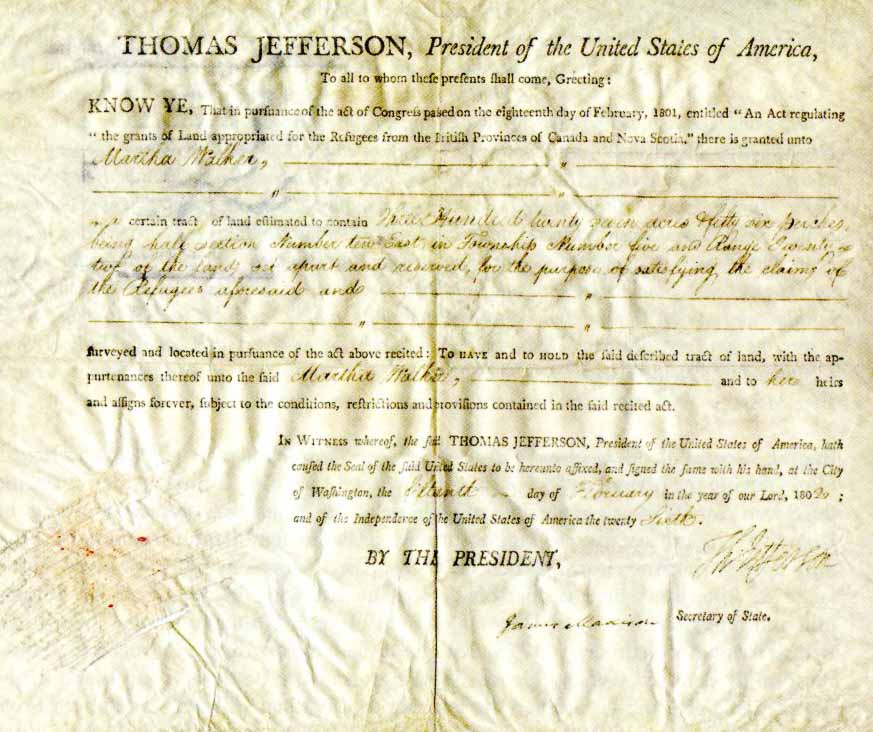 THOMAS JEFFERSON, President of the United States of America,
To all to whom these presents shall come, Greeting:
KNOW YE, That in pursuance of the act of Congress passed on the eighteenth day of February, 1801, entitled "An Act regulating
"the grants of Land appropriated for the Refugees from the British Provinces of Canada and Nova Scotia," there is granted unto
Martha Walker,
certain tract of land estimated to contain Three Hundred twenty seven acres & fifty six perches,
being half section Number ten East, in Township Number five and Range Twenty
two of the lands set apart and reserved, for the purpose of satisfying, the claims of
the Refugees aforesaid and
surveyed and located in pursuance of the act above recited: TO HAVE and to HOLD the said described tract of land, with the ap-
purtenances thereof unto the said Martha Walker, and to hers heirs
and assigns forever, subject to the conditions, restrictions and provisions contained in the said recited act.
IN WITNESS whereof, the said THOMAS JEFFERSON, President of the United States of America, hath
caused the Seal of the said United States to be hereunto affixed, and signed the same with his hand, at the City
of Washington, the day of February in the year of our Lord, 1802;
and of the Independence of the United States of America the twenty Sixth.
BY THE PRESIDENT,
Th Jefferson
James Madison Secretary of State.